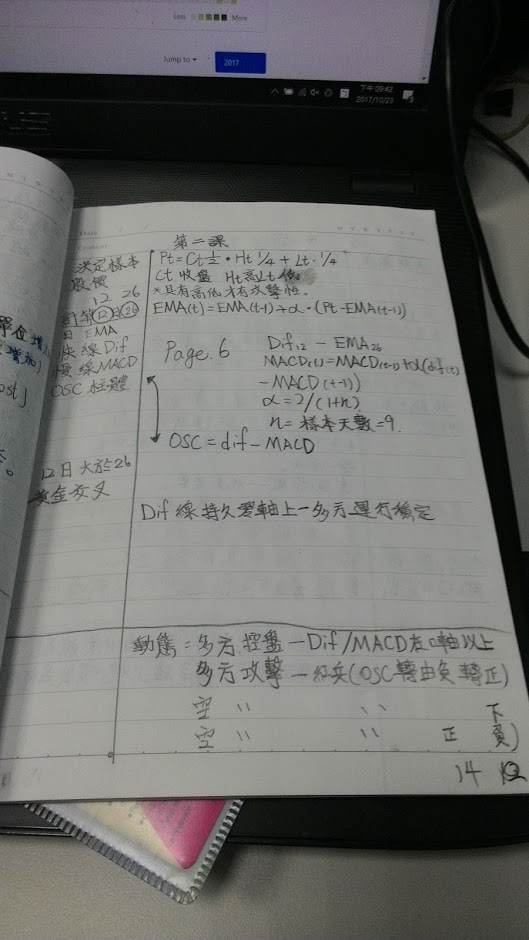 Less More
Jump to 2017
下午 09:42
2017/10/23
Date
第二課
決定樣本
股價
12 26
計算12日26
日 EMA
快線 Dif
慢線 MACD
OSC 柱體
12日大於26
黃金交叉
Pt = Ct ½ + Ht ¼ + Lt · ¼
Ct 收盤 Ht高 Lt 低
*具有高低才有攻擊性.
EMA(t) = EMA(t-1) + α · (Pt - EMA(t-1))
Page. 6
Dif12 - EMA26
MACD(t) = MACD(t-1) + α(dif(t)
- MACD(t-1))
α = 2/(1+n)
n = 樣本天數 = 9.
OSC = dif - MACD
Dif 線持久零軸上 - 多方運行穩定
動態 = 多方控盤 - Dif/MACD在0軸以上
多方攻擊 - (OSC轉由負轉正)
空 〃 〃 下
空 〃 〃 正 負)
14